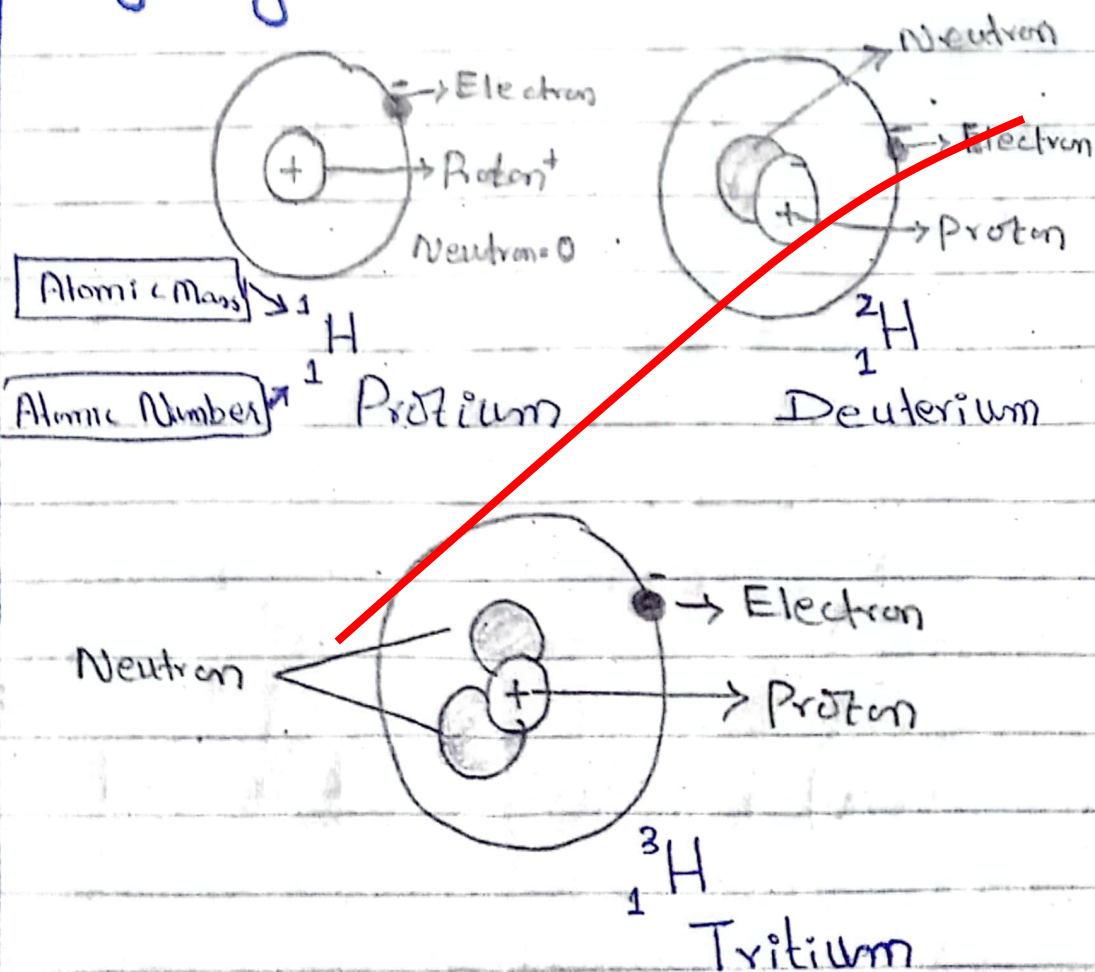 Electron
Proton+
Neutron=0
Atomic Mass
1
H
1
Atomic Number
Protium
Neutron
Electron
Proton
2
H
1
Deuterium
Neutron
Electron
Proton
3
H
1
Tritium